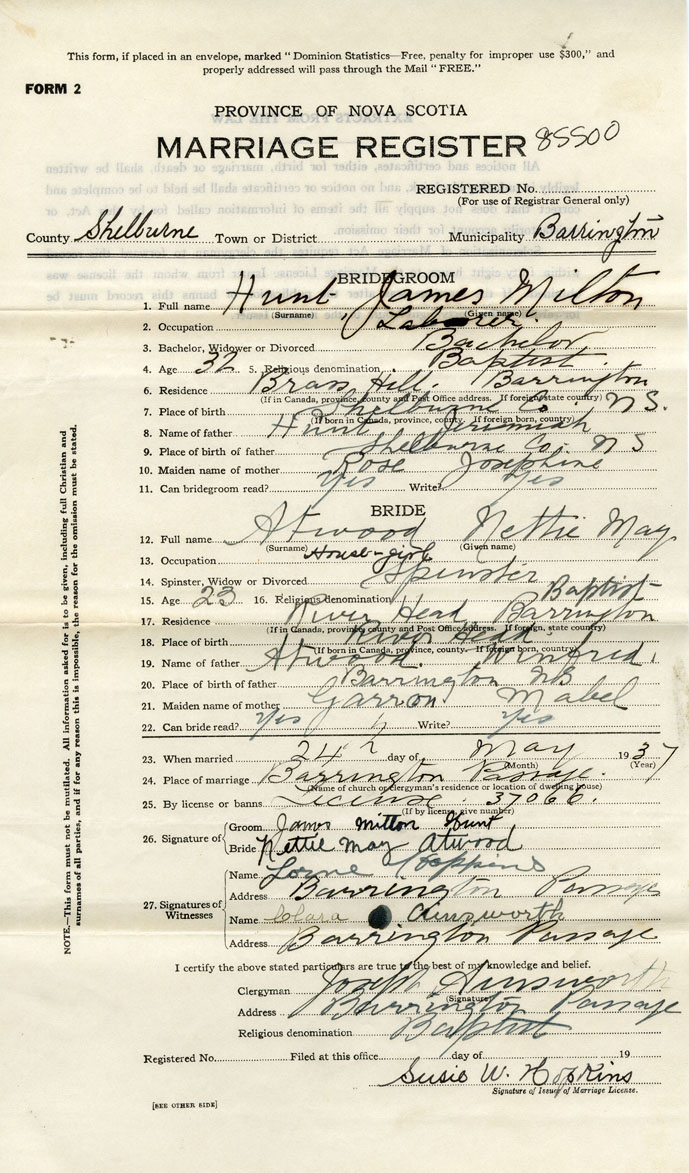 This form, if placed in an envelope, marked "Dominion Statistics—Free, penalty for improper use $300," and
properly addressed will pass through the Mail "FREE."
FORM 2
PROVINCE OF NOVA SCOTIA
MARRIAGE REGISTER 85500
REGISTERED No.
(For use of Registrar General only)
County Shelburne Town or District Municipality Barrington
BRIDEGROOM
1. Full name Hunt James Milton
(Surname) (Given name)
2. Occupation Laborer.
3. Bachelor, Widower or Divorced Bachelor
4. Age 32 5. Religious denomination Baptist.
6. Residence Brass Hill. Barrington
(If in Canada, province, county and Post Office address. If foreign, state country)
7. Place of birth Shelburne Co. N.S.
(If born in Canada, province, county. If foreign born, country)
8. Name of father Hunt Jeremiah
9. Place of birth of father Shelburne Co. N S
10. Maiden name of mother Rose Josephine
11. Can bridegroom read? Yes Write? Yes
BRIDE
12. Full name Atwood Nettie May
(Surname) (Given name)
13. Occupation House-girl
14. Spinster, Widow or Divorced Spinster
15. Age 23 16. Religious denomination Baptist
17. Residence River Head Barrington
(If in Canada, province, county and Post Office address. If foreign, state country)
18. Place of birth River Head.
(If born in Canada, province, county. If foreign born, country)
19. Name of father Atwood. Winfred.
20. Place of birth of father Barrington NS
21. Maiden name of mother Garron Mabel
22. Can bride read? Yes Write? Yes
23. When married 24th day of May 1937
(Month) (Year)
24. Place of marriage Barrington Passage.
(Name of church or clergyman's residence or location of dwelling house)
25. By license or banns License. 37066.
(If by license, give number)
26. Signature of Groom James Milton Hunt
Bride Nettie May Atwood
27. Signatures of Witnesses
Name Lorne Hopkins
Address Barrington Passage
Name Clara Ainsworth
Address Barrington Passage
I certify the above stated particulars are true to the best of my knowledge and belief.
Clergyman Joseph Ainsworth
(Signature)
Address Barrington Passage
Religious denomination Baptist
Registered No. Filed at this office day of 19
Susie W. Hopkins
Signature of Issuer of Marriage License.
[SEE OTHER SIDE]
NOTE.—This form must not be mutilated. All information asked for is to be given, including full Christian and
surnames of all parties, and if for any reason this is impossible, the reason for the omission must be stated.